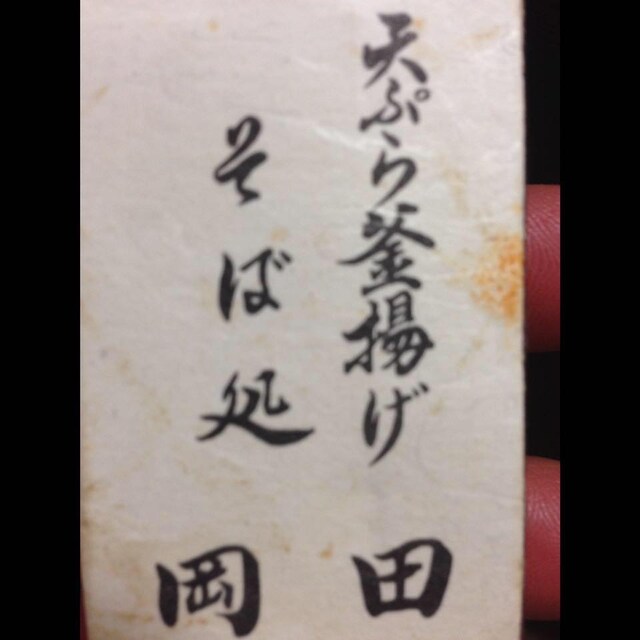 天ぷら釜揚げ
そば処
岡田